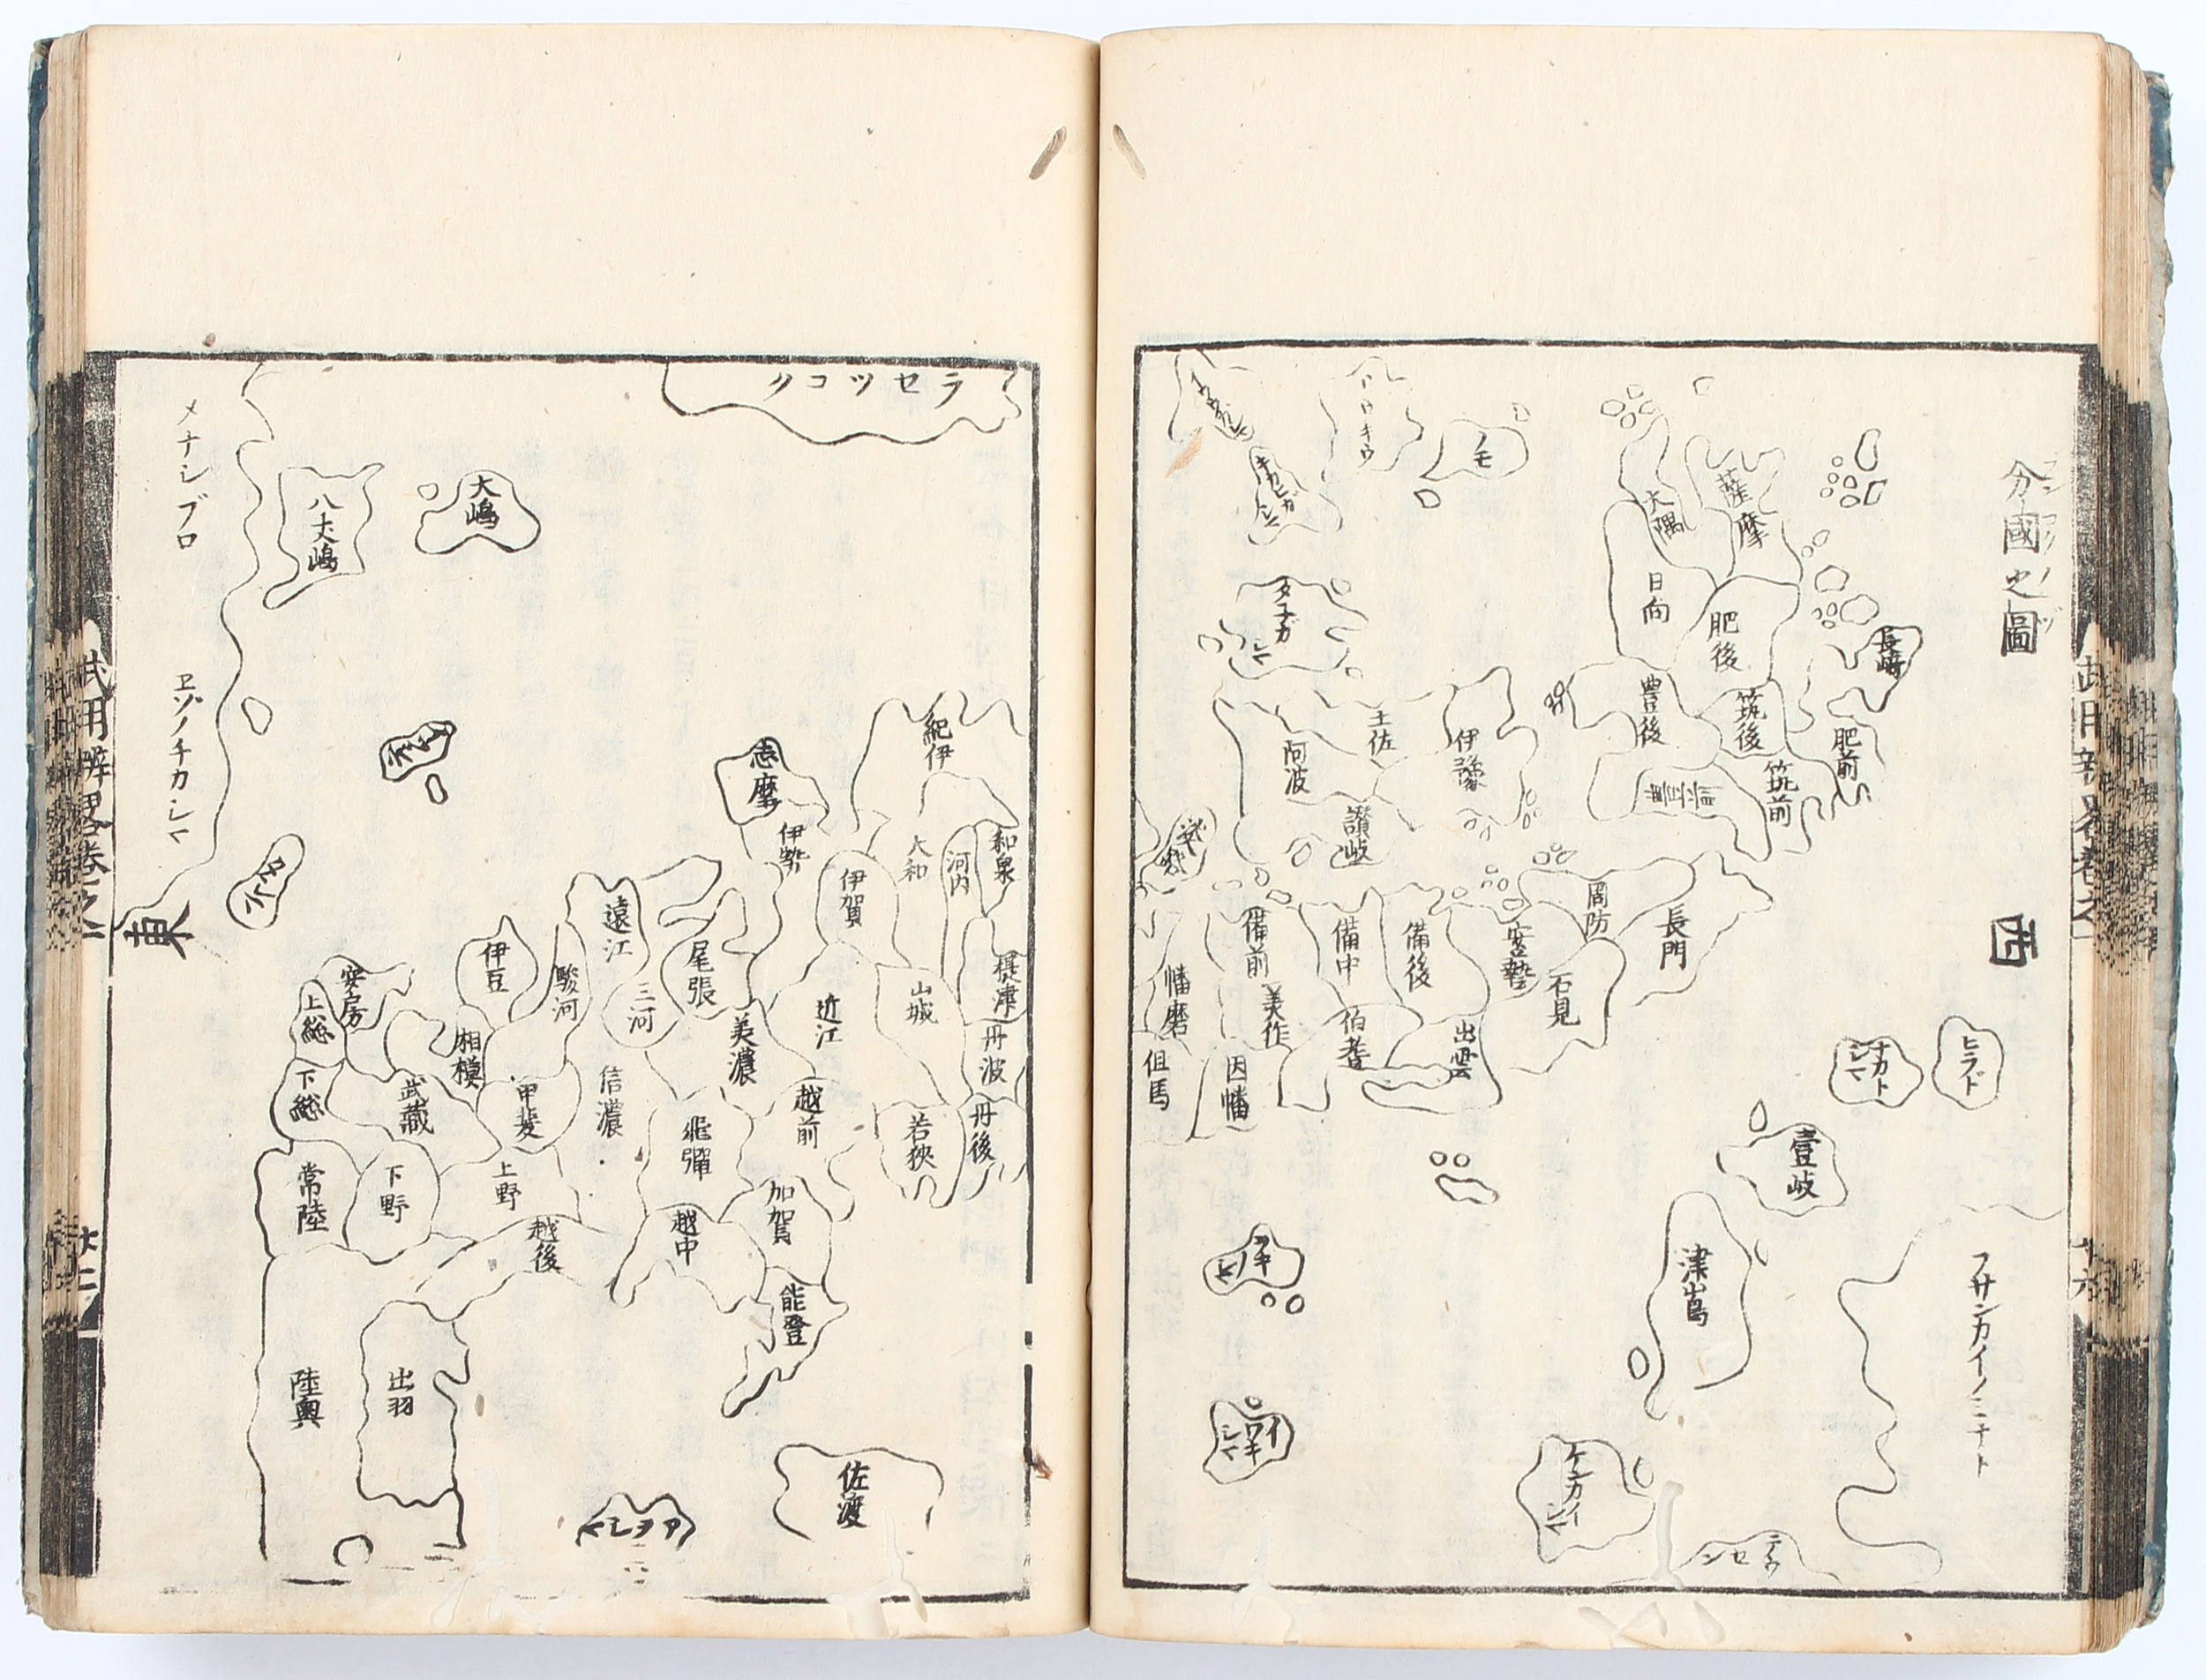 分國之圖
西
薩摩
大隅
日向
肥後
長崎
豊後
筑後
肥前
筑前
モ
キカヒガシマ
タネガシマ
土佐
伊豫
阿波
讃岐
周防
長門
安藝
石見
備後
備中
備前
美作
伯耆
出雲
幡磨
因幡
但馬
ヒラド
ナカトシマ
壹岐
津嶌
フサンカイノミナト
ラセツコク
メナシブロ
ヱゾノチカシマ
東
八丈嶋
大嶋
志摩
伊勢
紀伊
大和
河内
和泉
伊賀
遠江
尾張
三河
駿河
伊豆
安房
上総
下総
相模
武蔵
甲斐
信濃
美濃
近江
山城
摂津
丹波
丹後
若狭
越前
飛彈
加賀
越中
能登
越後
上野
下野
常陸
陸奥
出羽
佐渡
アヲシマ
武用辨畧巻之